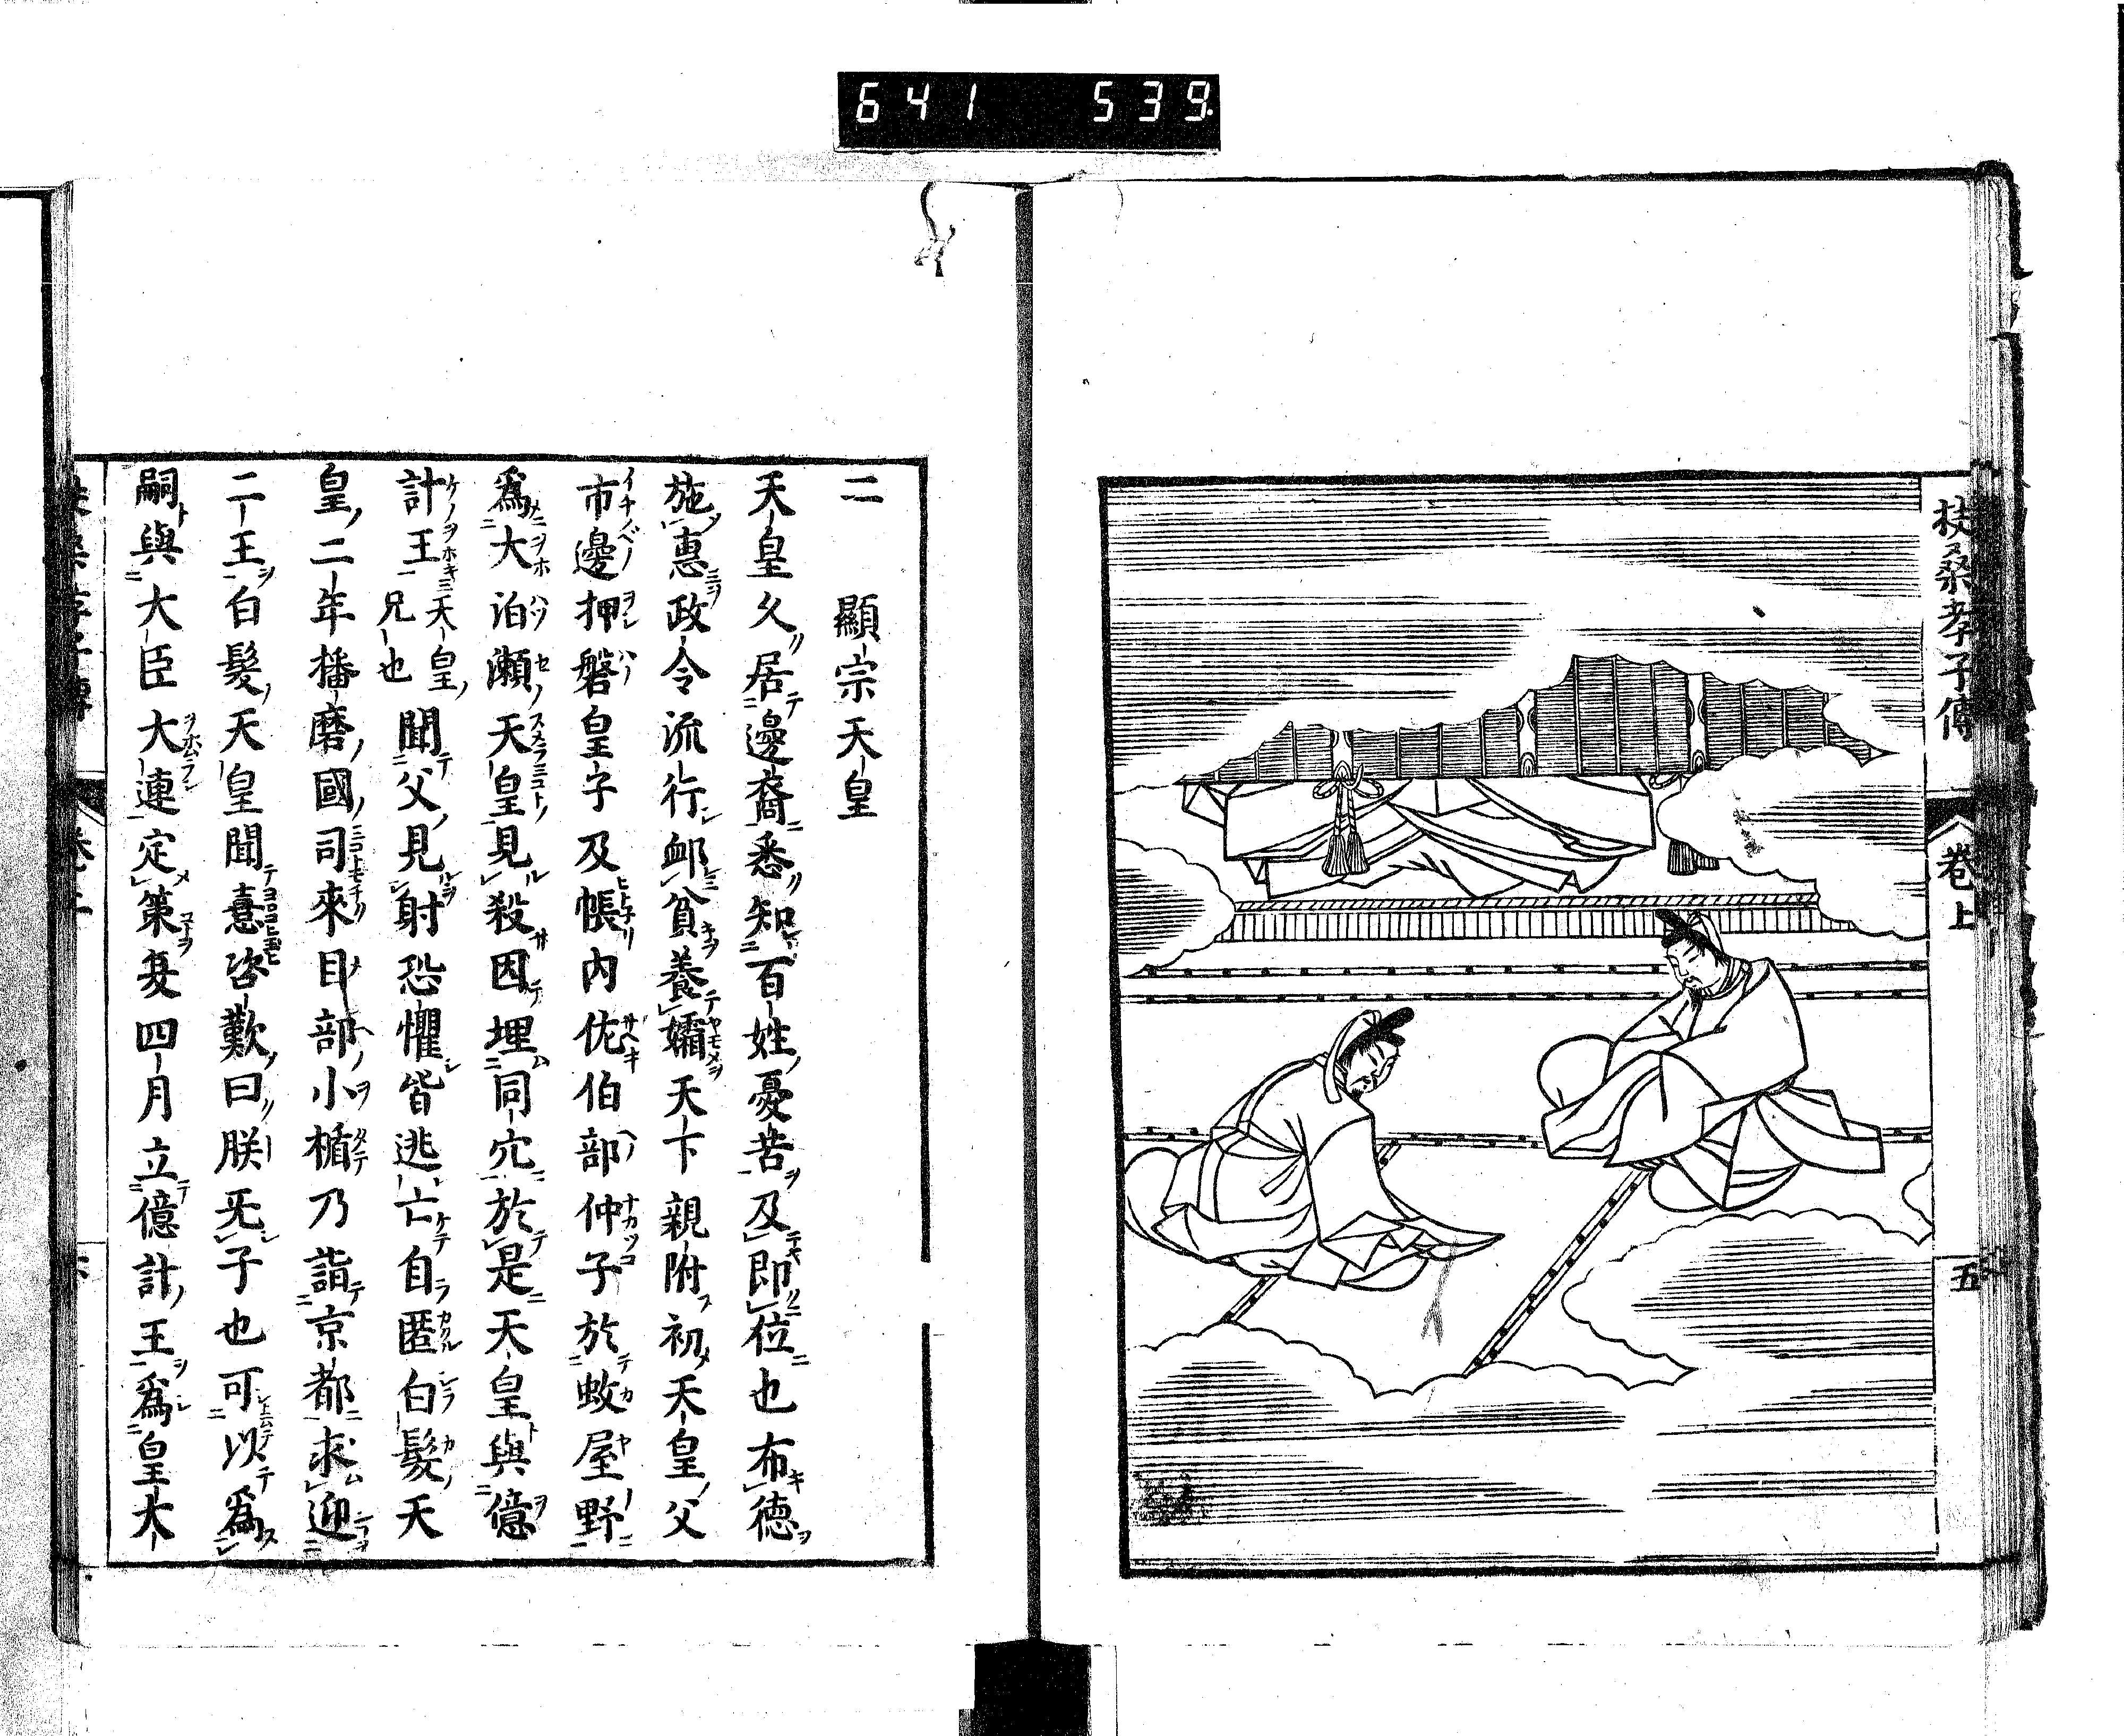 641 539.
扶桑孝子傳
卷上
五
二 顯宗天皇
天皇久居邊裔悉知百姓憂苦及即位也布德
施惠政令流行䘏貧養孀天下親附初天皇父
市邊押磐皇子及帳内佐伯部仲子於蚊屋野
爲大泊瀬天皇見殺因埋同穴於是天皇與億
計王天皇兄也聞父見射恐懼皆逃亡自匿白髮天
皇二年播磨國司來目部小楯乃詣京都求迎
二王白髮天皇聞憙咨歎曰朕无子也可以爲
嗣與大臣大連定策
四月立億計王爲皇太